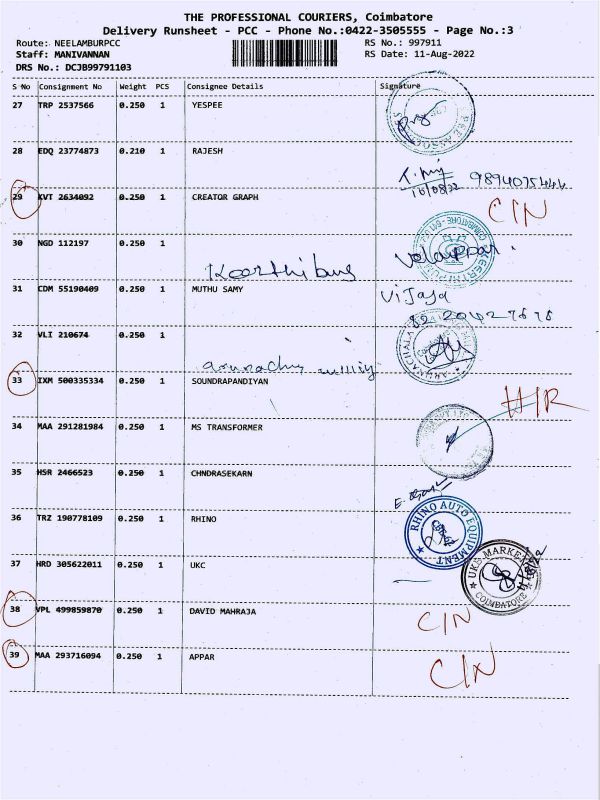 THE PROFESSIONAL COURIERS, Coimbatore
Delivery Runsheet - PCC - Phone No.:0422-3505555 - Page No.:3
Route: NEELAMBURPCC RS No.: 997911
Staff: MANIVANNAN RS Date: 11-Aug-2022
DRS No.: DCJB99791103
S No Consignment No Weight PCS Consignee Details Signature
27 TRP 2537566 0.250 1 YESPEE
28 EDQ 23774873 0.210 1 RAJESH
9894075444
29 KVT 2634092 0.250 1 CREATOR GRAPH C/N
30 NGD 112197 0.250 1
Keerthi
31 CDM 55190409 0.250 1 MUTHU SAMY Vijaya
32 VLI 210674 0.250 1
33 IXM 500335334 0.250 1 SOUNDRAPANDIYAN
H/R
34 MAA 291281984 0.250 1 MS TRANSFORMER
35 HSR 2466523 0.250 1 CHNDRASEKARN
36 TRZ 190778109 0.250 1 RHINO
RHINO AUTO EQUIPMENT
37 HRD 305622011 0.250 1 UKC
COIMBATORE
38 VPL 499859870 0.250 1 DAVID MAHRAJA C/N
39 MAA 293716094 0.250 1 APPAR C/N